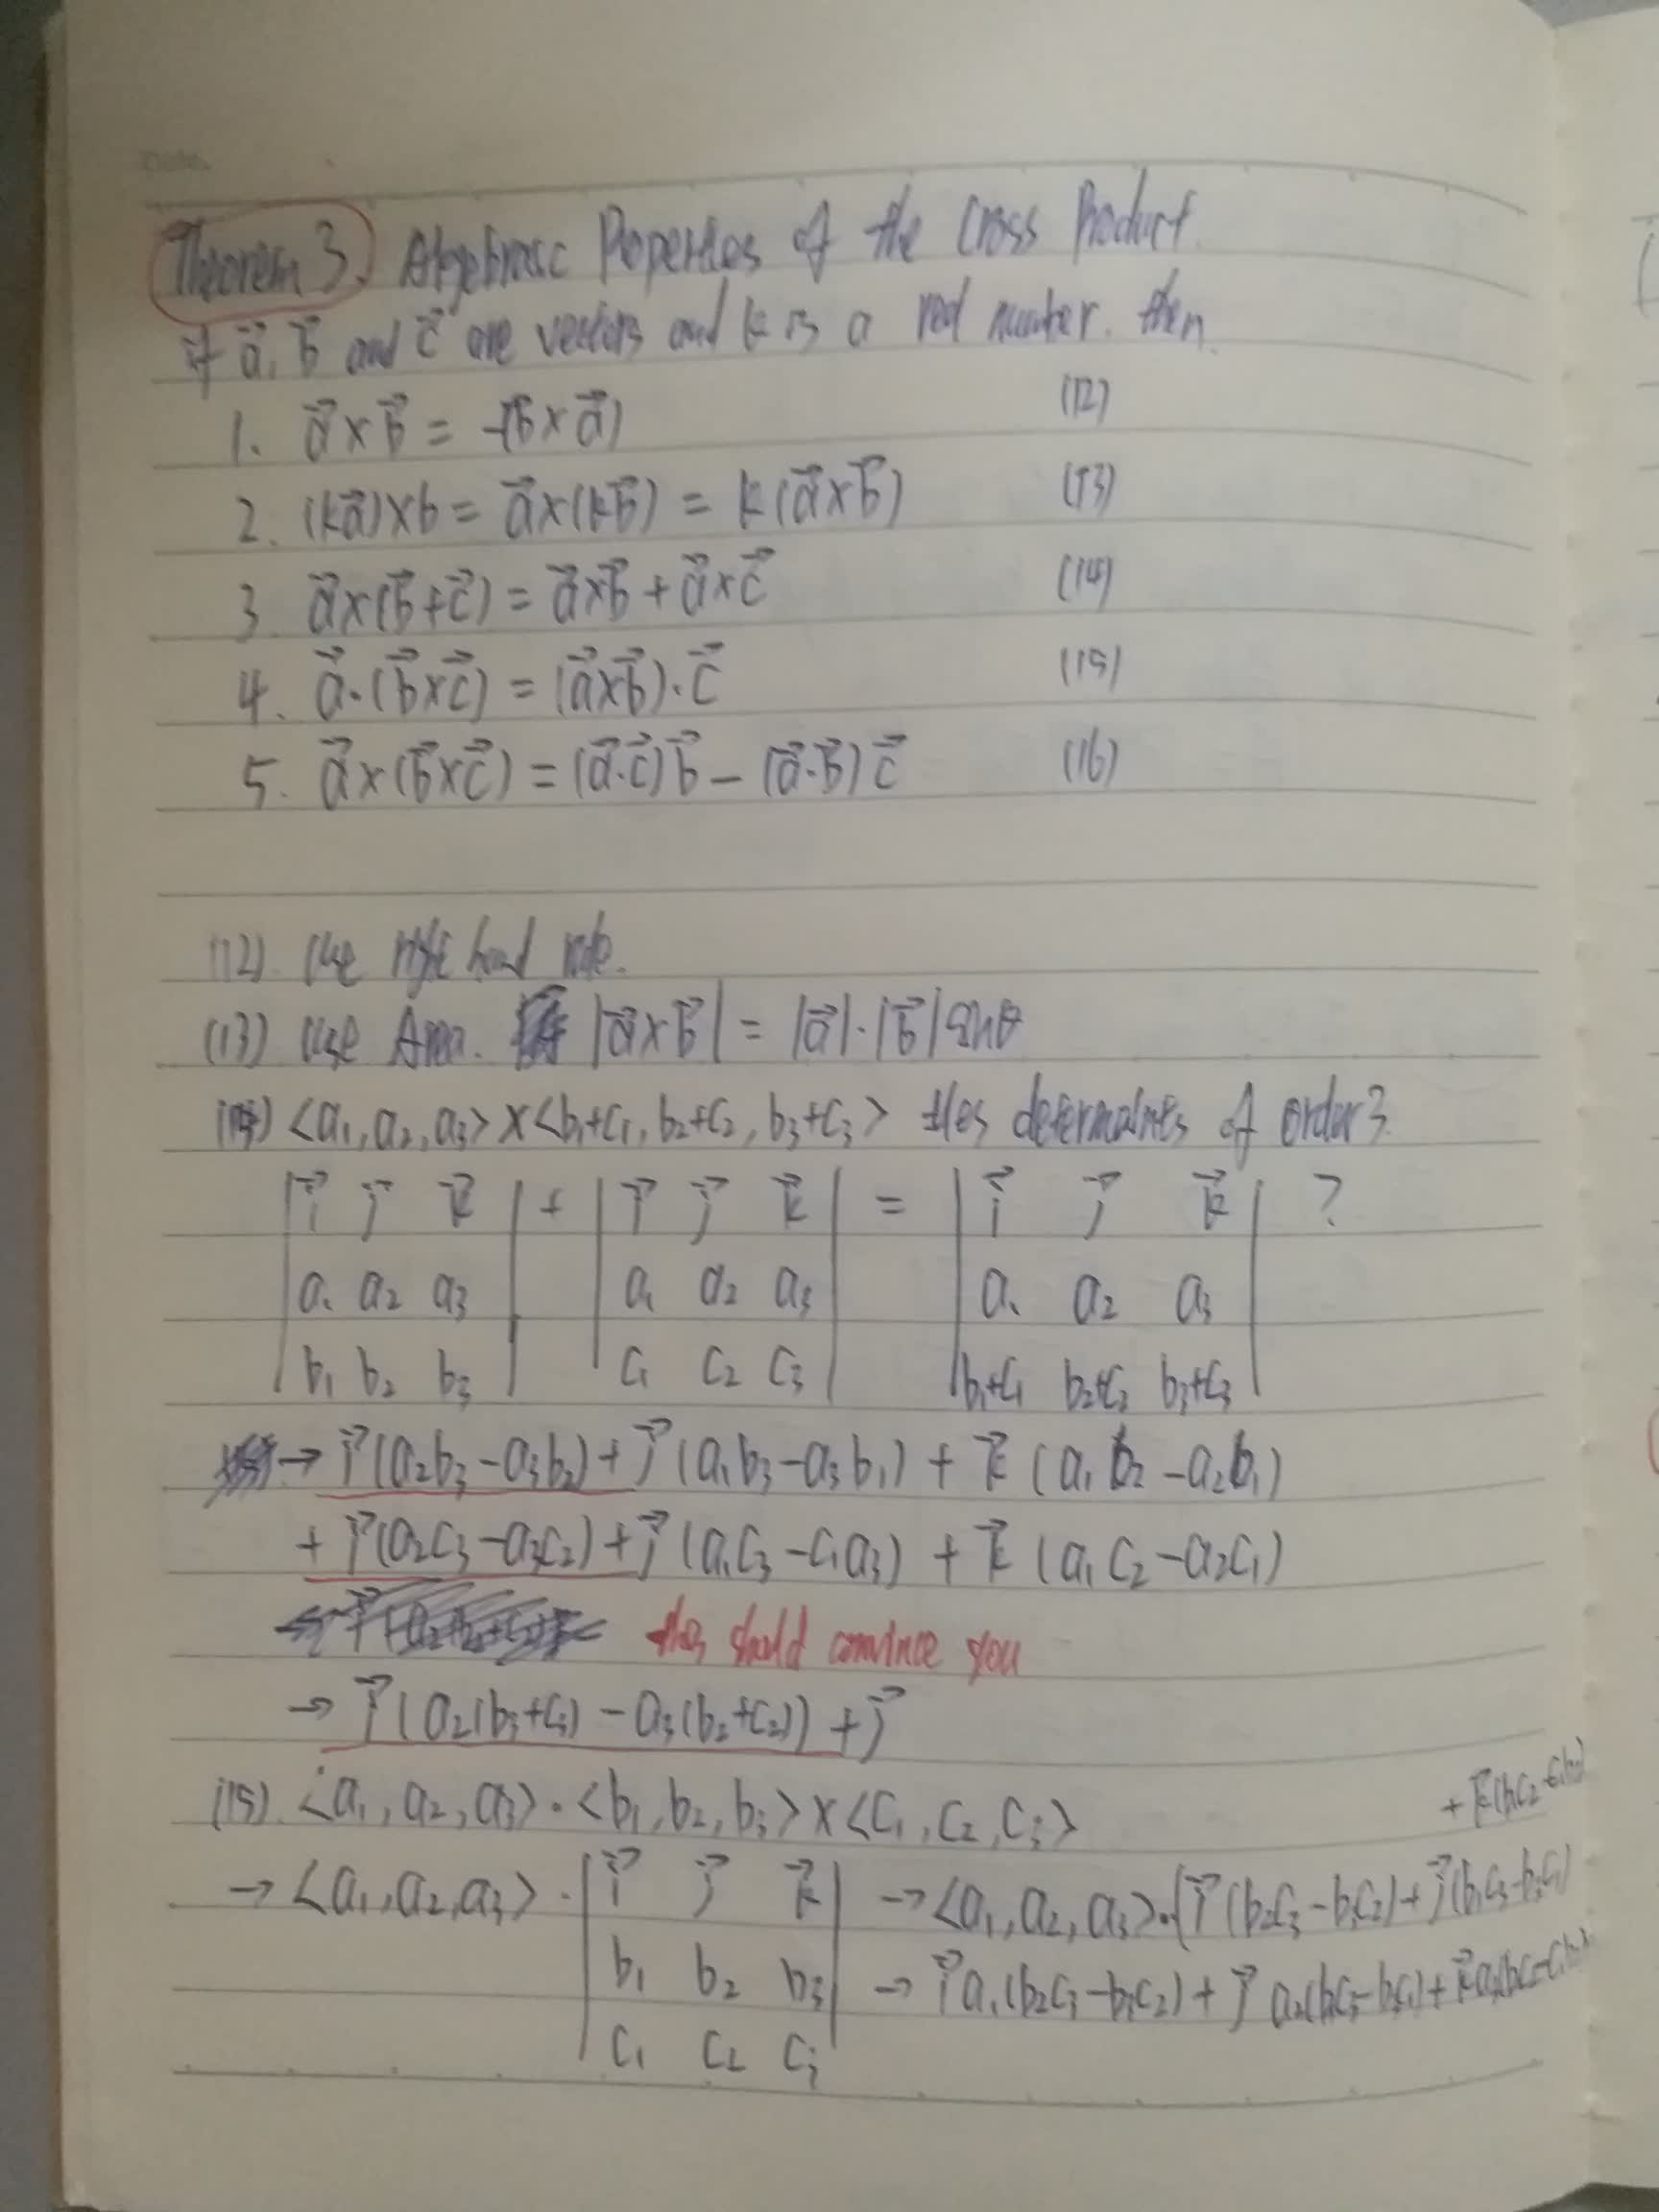 Date.
Theorem 3. Algebraic Properties of the Cross Product.
if a⃗, b⃗ and c⃗ are vectors and k is a real number. then
1. a⃗×b⃗ = -(b⃗×a⃗) (12)
2. (ka⃗)×b = a⃗×(kb⃗) = k(a⃗×b⃗) (13)
3. a⃗×(b⃗+c⃗) = a⃗×b⃗ + a⃗×c⃗ (14)
4. a⃗·(b⃗×c⃗) = (a⃗×b⃗)·c⃗ (15)
5. a⃗×(b⃗×c⃗) = (a⃗·c⃗)b⃗ - (a⃗·b⃗)c⃗ (16)
(12) Use right hand rule.
(13) Use Area. |a⃗×b⃗| = |a⃗|·|b⃗| sinθ
(14) <a₁, a₂, a₃> × <b₁+c₁, b₂+c₂, b₃+c₃> of order 3.
| i⃗ j⃗ k⃗ | + | i⃗ j⃗ k⃗ | = | i⃗ j⃗ k⃗ | ?
| a₁ a₂ a₃ | | a₁ a₂ a₃ | | a₁ a₂ a₃ |
| b₁ b₂ b₃ | | c₁ c₂ c₃ | | b₁+c₁ b₂+c₂ b₃+c₃ |
→ i⃗(a₂b₃-a₃b₂) + j⃗(a₁b₃-a₃b₁) + k⃗(a₁b₂-a₂b₁)
+ i⃗(a₂c₃-a₃c₂) + j⃗(a₁c₃-c₁a₃) + k⃗(a₁c₂-a₂c₁)
this should convince you
→ i⃗(a₂(b₃+c₃) - a₃(b₂+c₂)) + j⃗
(15). <a₁, a₂, a₃> · <b₁, b₂, b₃> × <c₁, c₂, c₃>
→ <a₁, a₂, a₃> · | i⃗ j⃗ k⃗ | → <a₁, a₂, a₃>·(i⃗(b₂c₃-b₃c₂) + j⃗(b₁c₃-b₃c₁) + k⃗(b₁c₂-c₁b₂)
| b₁ b₂ b₃ | → i⃗a₁(b₂c₃-b₃c₂) + j⃗a₂(b₁c₃-b₃c₁) + k⃗a₃(b₁c₂-c₁b₂)
| c₁ c₂ c₃ |